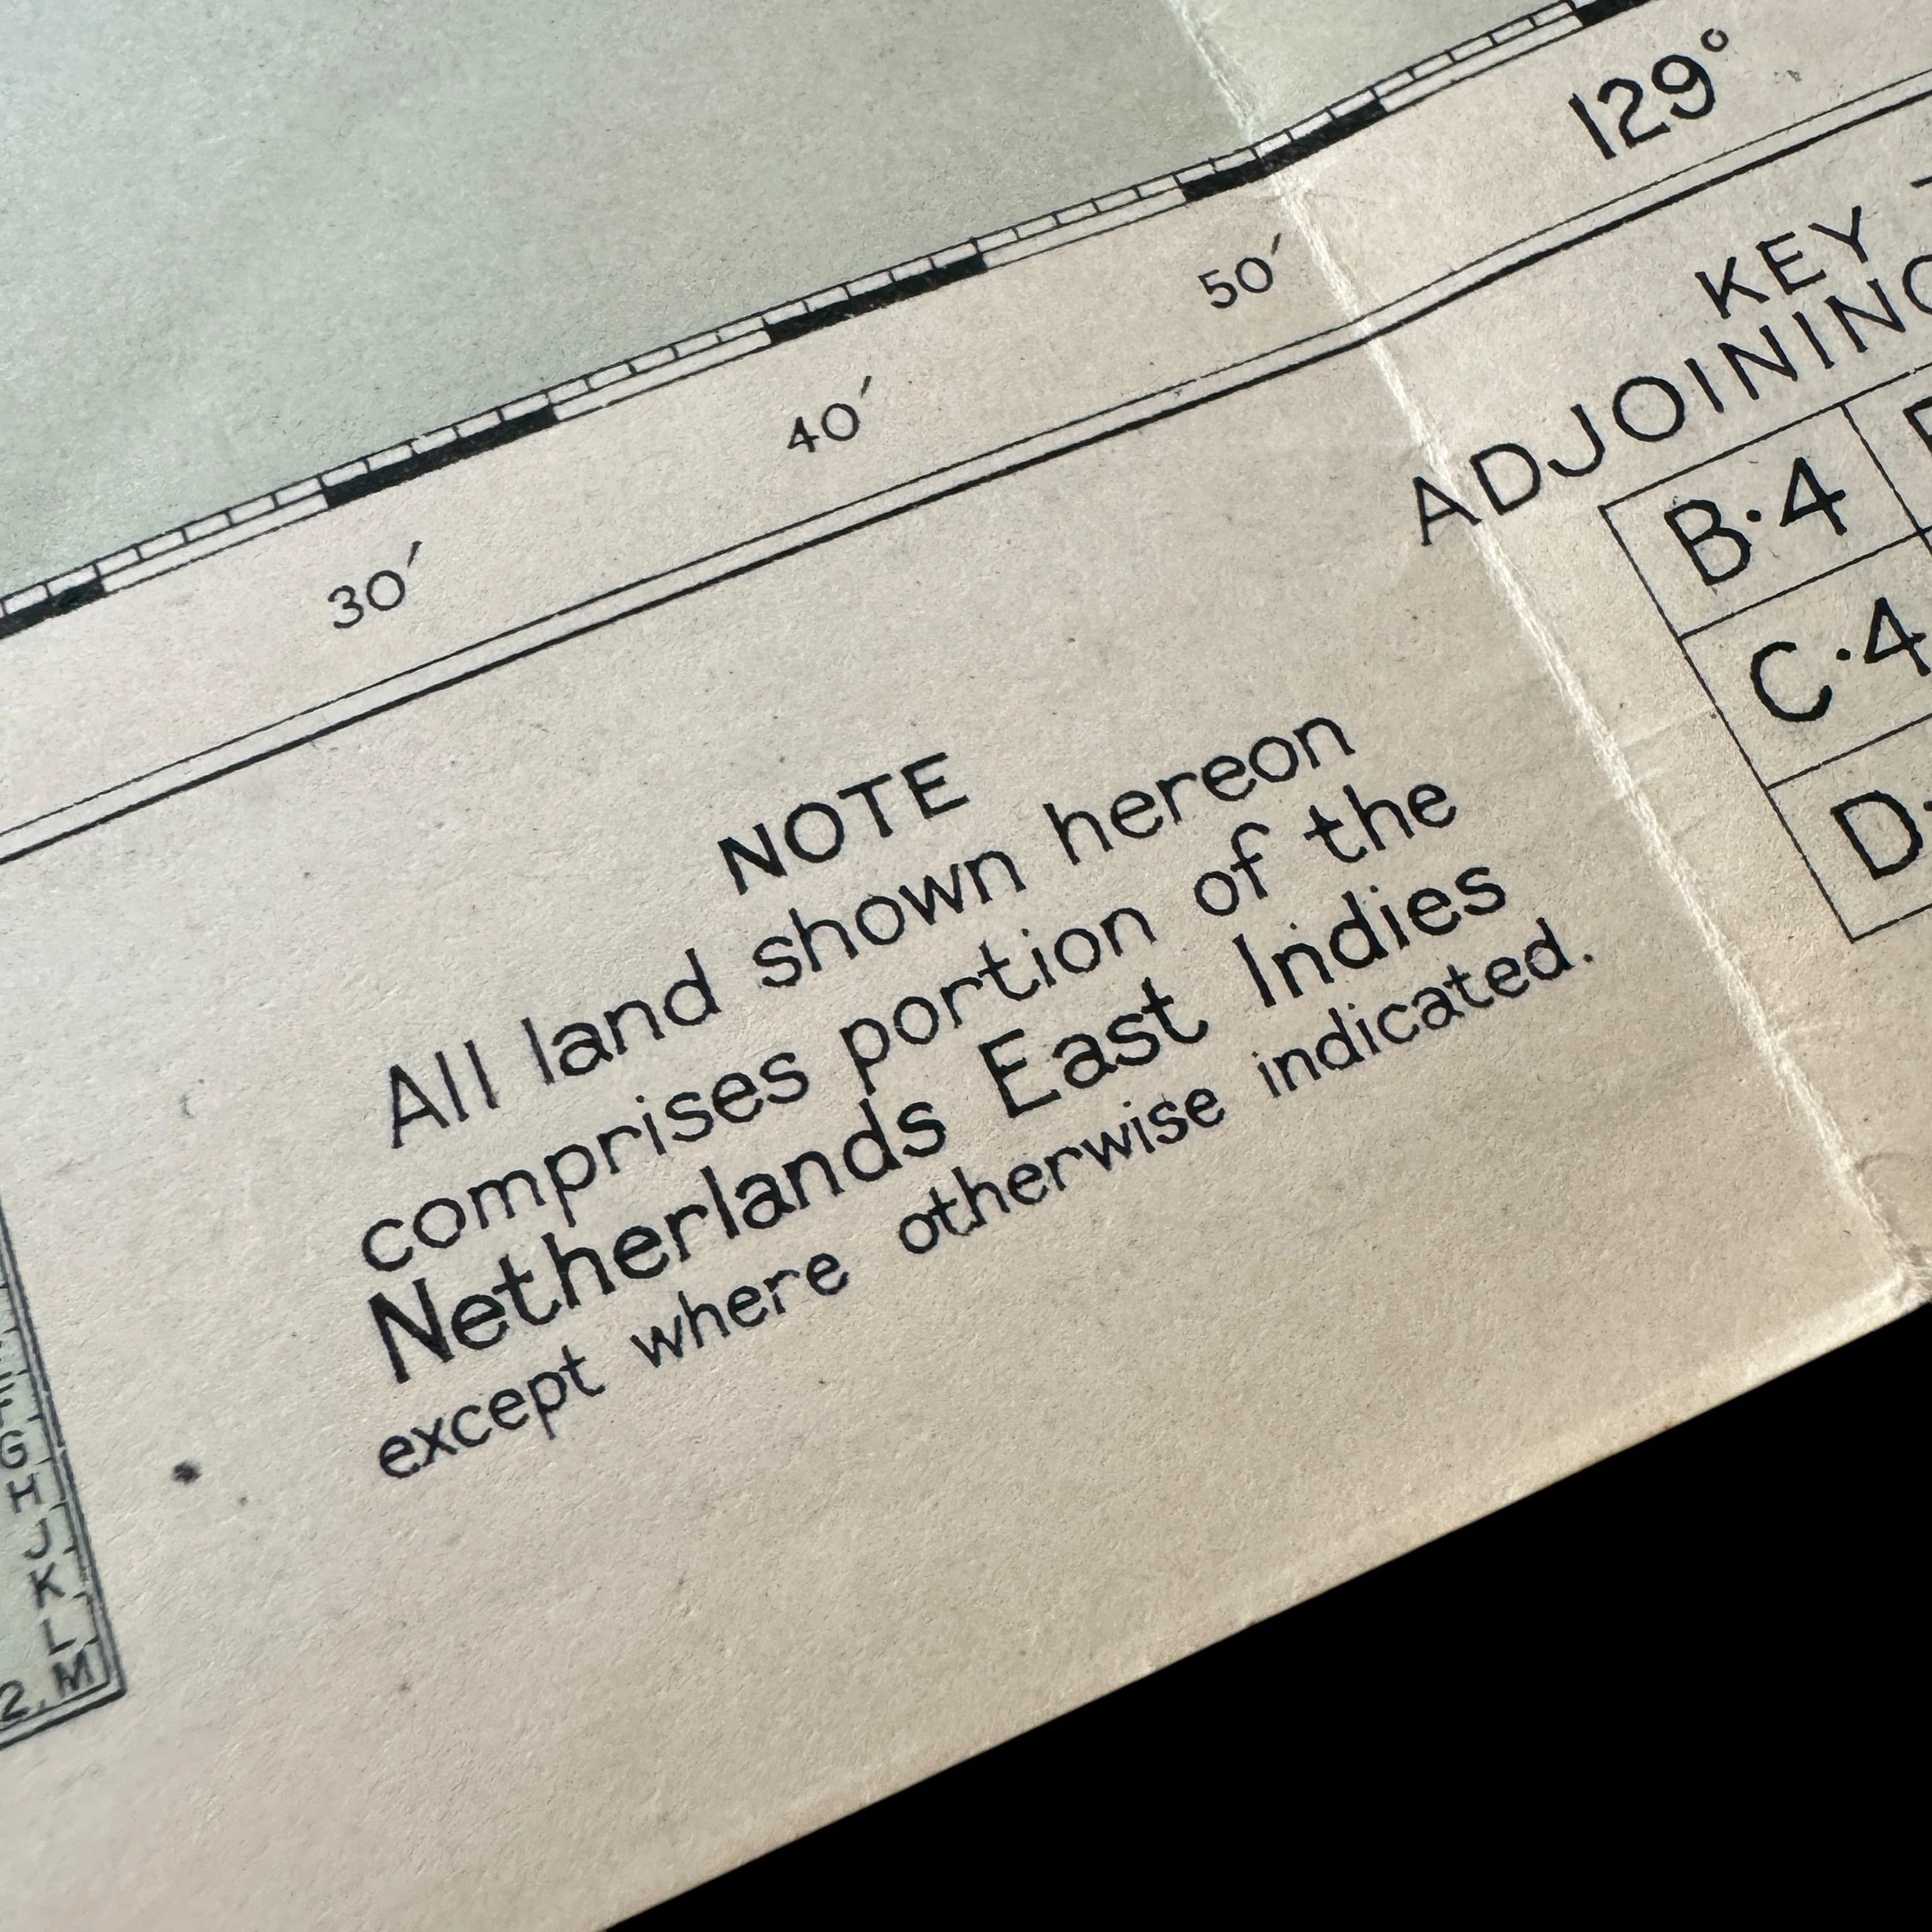 129°
50′
40′
30′
KEY
ADJOINING
B·4
C·4
D·
NOTE
All land shown hereon
comprises portion of the
Netherlands East Indies
except where otherwise indicated.
G
H
J
K
L
M
2.